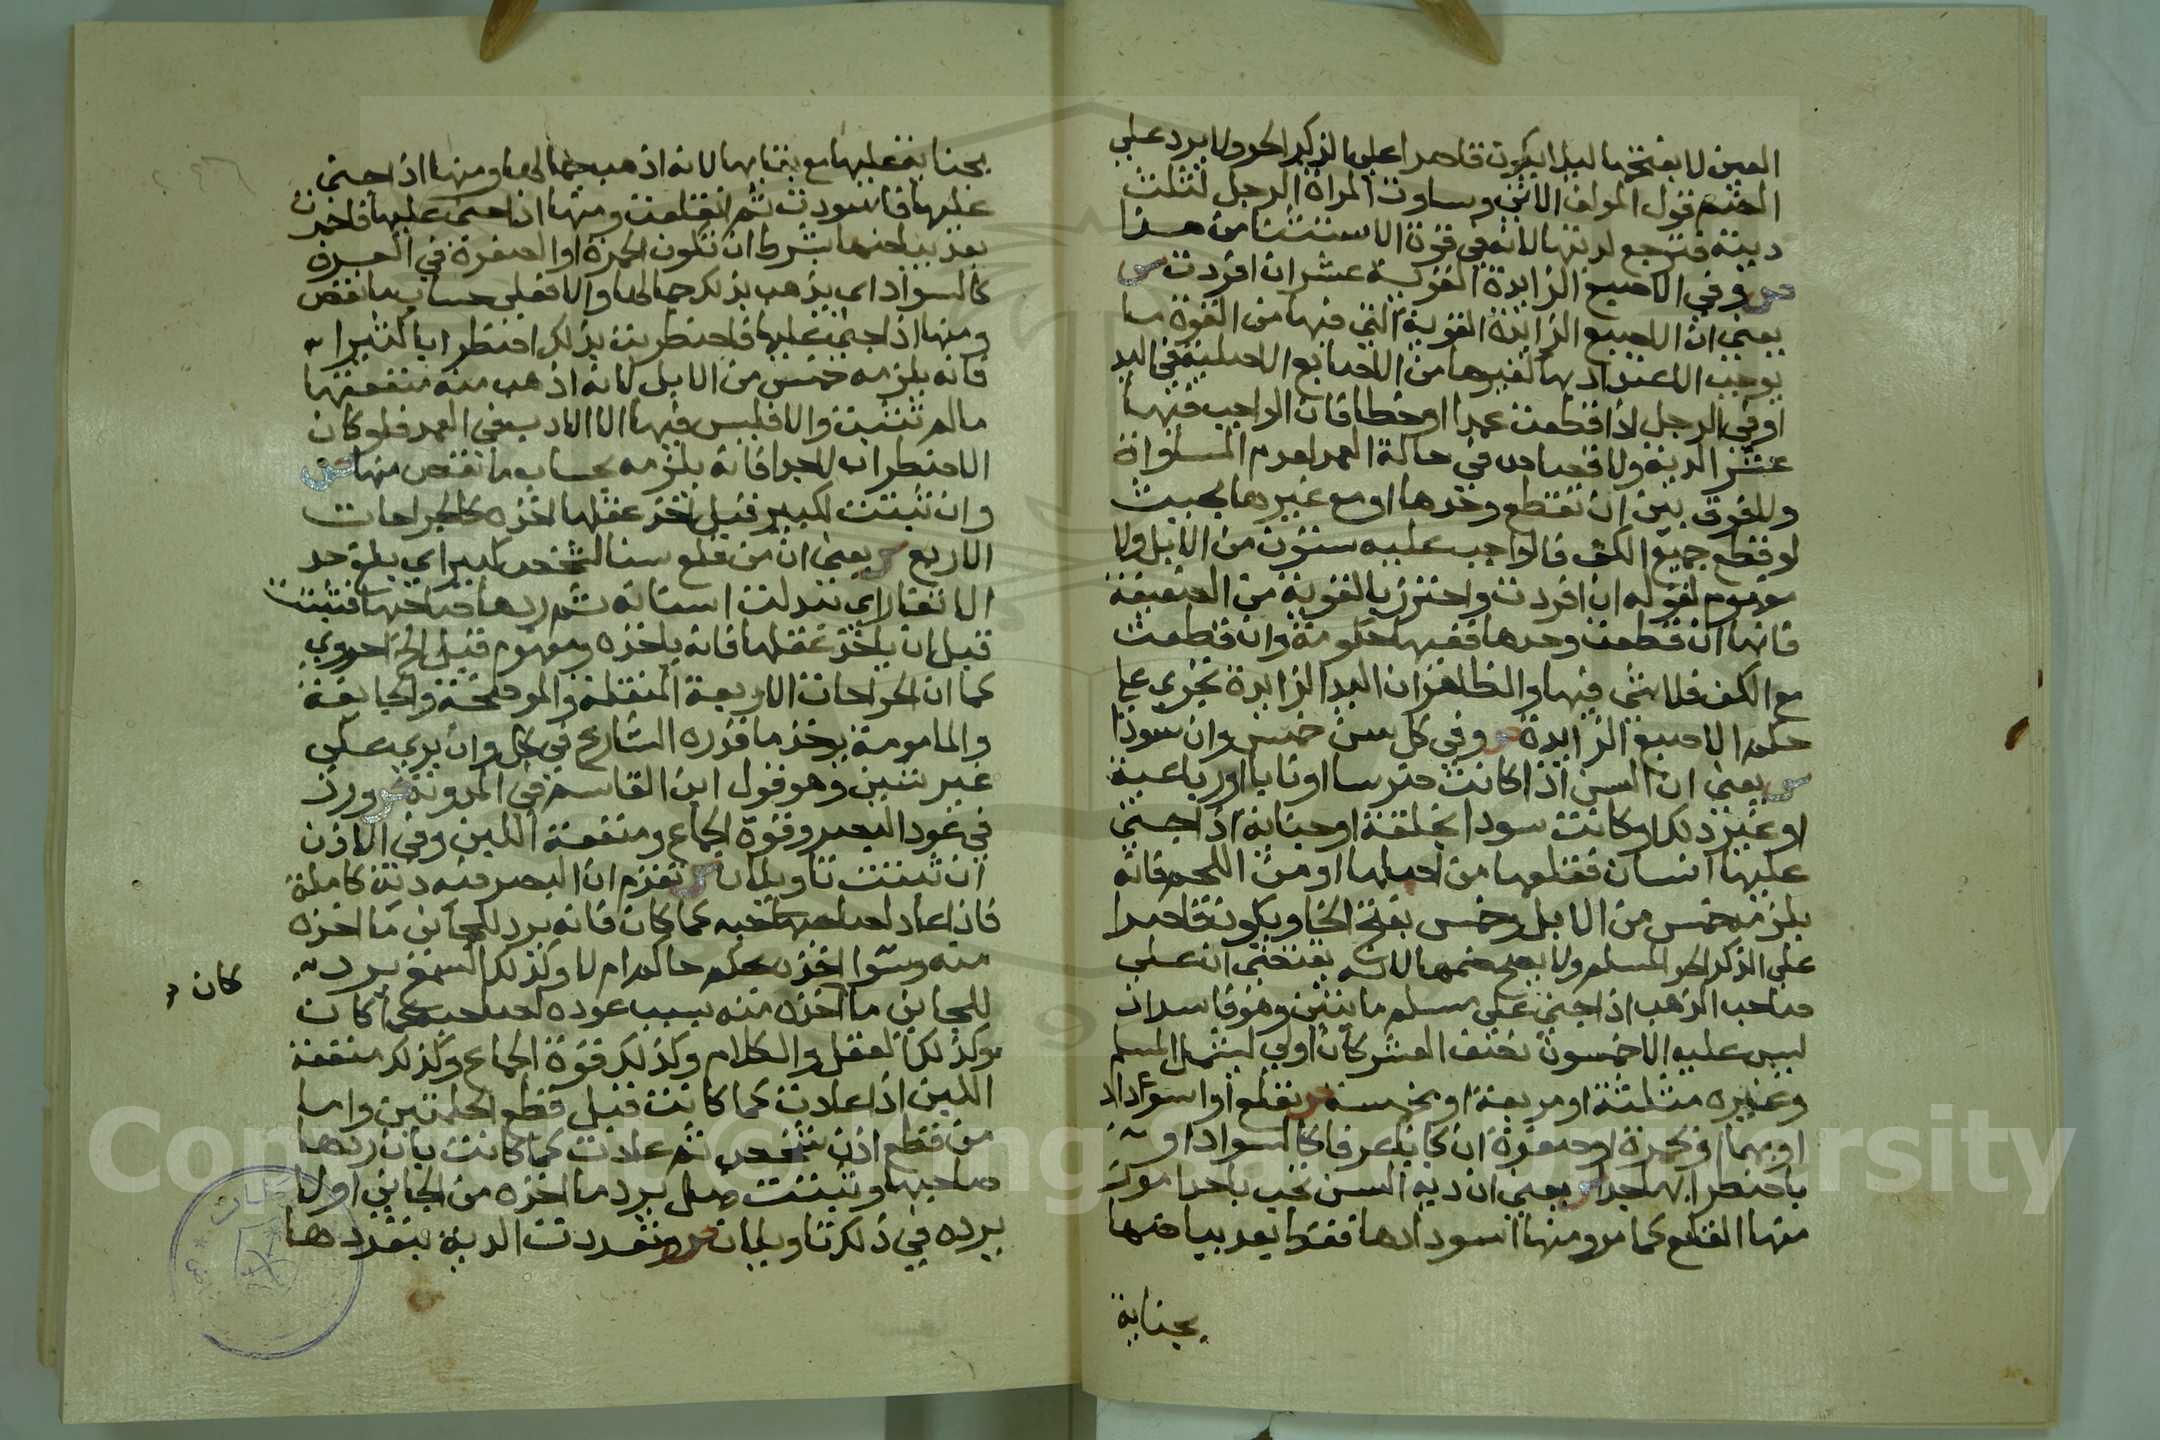 العين لا بفتحها ليلا يكون قاصرا علي الذكر الحر ولا يرد علي
الضم قول المولف الاتي وساوت المراة الرجل لثلث
ديته فترجع لديتها لانه في قوة الاستثنا من هذا
ص وفي الاصبع الزايدة القوية عشر ان افردت ش
يعني ان الاصبع الزايدة القوية التي فيها من القوة ما
يوجب الاعتداد بها كغيرها من الاصابع الاصلية في اليد
او في الرجل اذا قطعت عمدا او خطا فان الواجب فيها
عشر الدية ولا قصاص في حالة العمد لعدم المساواة
ولا فرق بين ان تقطع وحدها او مع غيرها بحيث
لو قطع جميع الكف فالواجب عليه ستون من الابل ولا
مفهوم لقوله ان افردت واحترز بالقوية من الضعيفة
فانها ان قطعت وحدها ففيها حكومة وان قطعت
مع الكف فلا شي فيها والظاهر ان اليد الزايدة تجري علي
حكم الاصبع الزايدة ص وفي كل سن خمس وان سودا
ش يعني ان السن اذا كانت ضرسا او نابا او رباعية
او غير ذلك او كانت سودا بخلقة او جناية اذا جني
عليها انسان فقلعها من اصلها او من اللحم فانه
يلزمه خمس من الابل وخمس بفتح الخا ويكون قاصرا
علي الذكر الحر المسلم ولا يصح ضمها لانه يقتضي ان علي
صاحب الذهب اذا جني علي مسلم مايتين وهو فاسد اذ
ليس عليه الا خمسون نصف العشر كان اولي ليشمل المسلم
وغيره مثلثة او مربعة او مخمسة ص بقلع او اسوداد
او بهما او بحمرة او صفرة ان كانا عرفا كالسواد او
باضطرابها جدا ش يعني ان دية السن تجب باحد امور
منها القلع كما مر ومنها اسودادها فقط بعد بياضها
بجناية
بجناية عليها مع بقايها لانه اذهب جمالها ومنها اذا جني
عليها فاسودت ثم انقلعت ومنها اذا جني عليها فاحمرت
بعد بياضها بشرط ان تكون الحمرة او الصفرة في العرف
كالسواد اي يذهب بذلك جمالها والا فعلي حساب ما نقص
ومنها اذا جني عليها فاضطربت بذلك اضطرابا كثيرا
فانه يلزمه خمس من الابل لانه اذهب منه منفعتها
ما لم تثبت والا فليس فيها الا الادب في العمد فلو كان
الاضطراب لا جدا فانه يلزمه بحساب ما نقص منها ص
وان ثبتت لكبير قبل اخذ عقلها اخذه كالجراحات
الاربع ش يعني ان من قلع سنا لشخص كبير اي بلغ حد
الاثغار اي تبدلت اسنانه ثم ردها صاحبها فثبتت
قبل ان ياخذ عقلها فانه ياخذه ومفهوم قبل الخ احروي
كما ان الجراحات الاربعة المنقلة والموضحة والجايفة
والمامومة يوخذ ما قرره الشارع في كل وان بري علي
غير شين وهو قول ابن القاسم في المدونة ص ورد
في عود البصر وقوة الجماع ومنفعة اللبن وفي الاذن
ان ثبتت تاويلان ش تقدم ان البصر فيه دية كاملة
فاذا عاد لصاحبه كما كان فانه يرد للجاني ما اخذه
منه وسوا اخذه بحكم حاكم ام لا وكذلك السمع يرد
للجاني ما اخذه منه بسبب عوده لصاحبه كما كان
وكذلك العقل والكلام وكذلك قوة الجماع وكذلك منفعة
اللبن اذا عادت كما كانت قبل قطع الحلمتين واما
من قطع اذن شخص ثم عادت كما كانت بان ردها
صاحبها وثبتت هل يرد ما اخذه من الجاني او لا
يرده في ذلك تاويلان ص وتعددت الدية بتعددها
كان